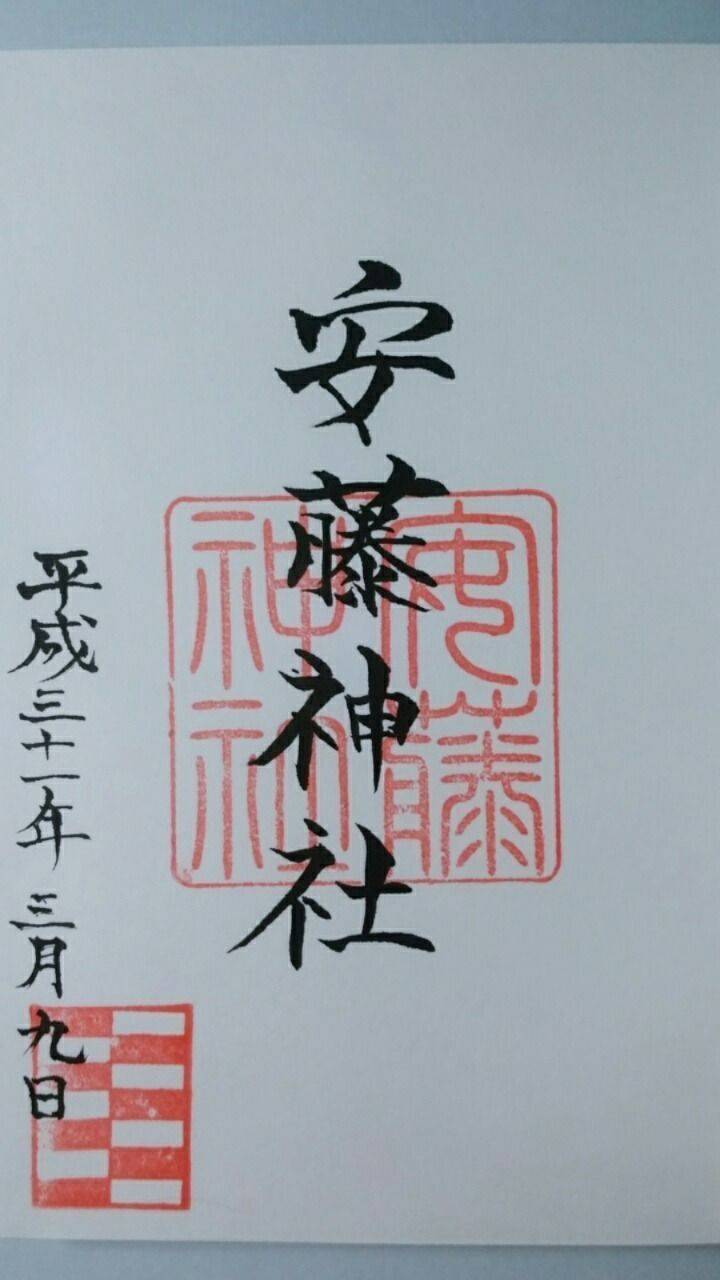 安藤神社
安藤
神社
平成三十一年三月九日